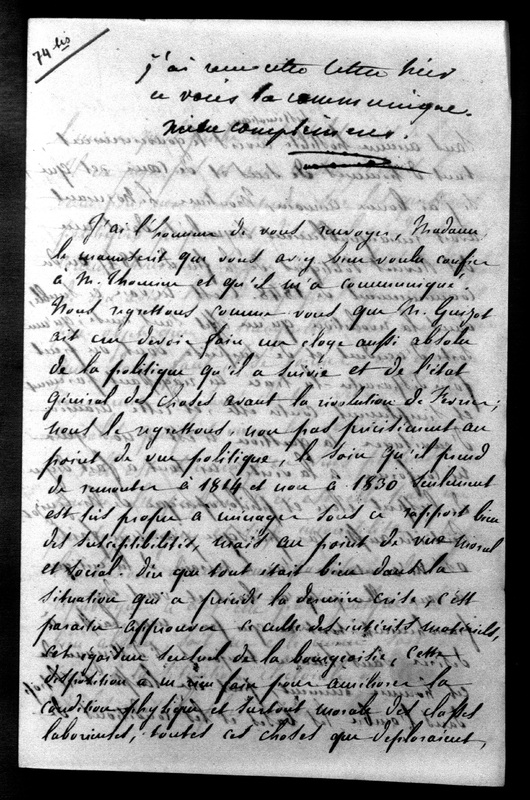 74 bis
j'ai reçu cette lettre hier
je vous la communique.
mille complimens.
J'ai l'honneur de vous renvoyer, Madame,
le manuscrit que vous aviez bien voulu confier
à M. Thomine et qu'il m'a communiqué.
Nous regrettons comme vous que M. Guizot
ait cru devoir faire un éloge aussi absolu
de la politique qu'il a suivie et de l'état
général des choses avant la révolution de Février;
nous le regrettons, non pas précisément au
point de vue politique, le soin qu'il prend
de remonter à 1814 et non à 1830 seulement
est très propre à ménager sous ce rapport bien
des susceptibilités, mais au point de vue moral
et social. Dire que tout était bien dans la
situation qui a précédé la dernière crise, c'est
paraître approuver ce culte des intérêts matériels,
cet égoïsme surtout de la bourgeoisie, cette
disposition à ne rien faire pour améliorer la
condition physique et surtout morale des classes
laborieuses, toutes ces choses que déploraient